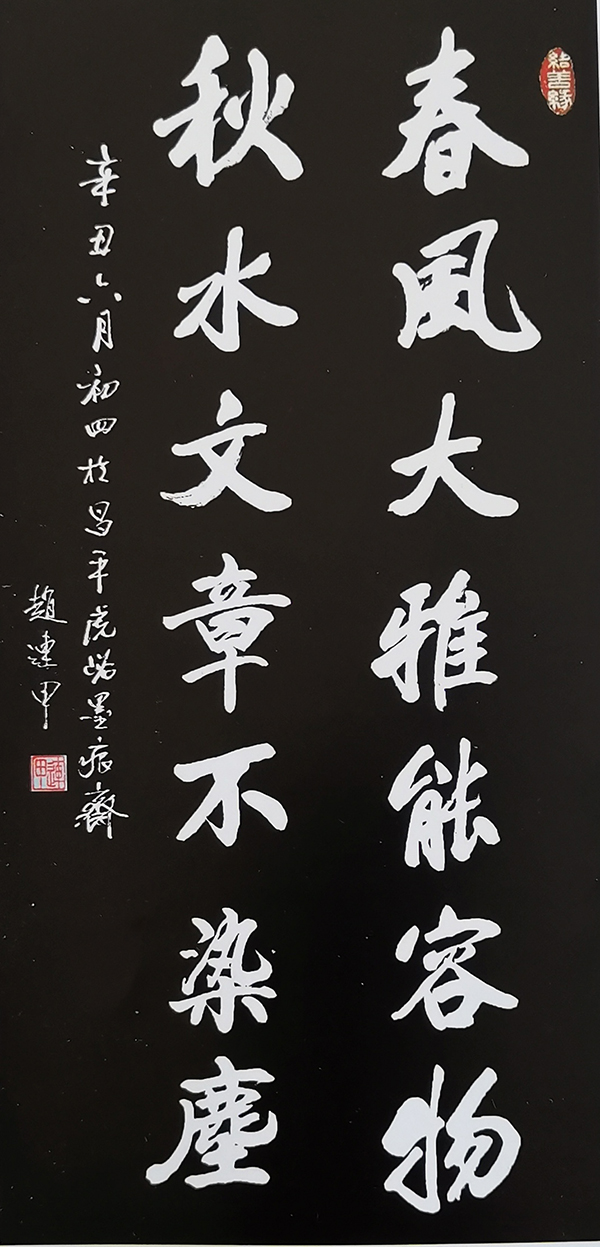 結善緣
春風大雅能容物
秋水文章不染塵
辛丑六月初四於昌平虎峪墨痕齋
趙連甲
連甲